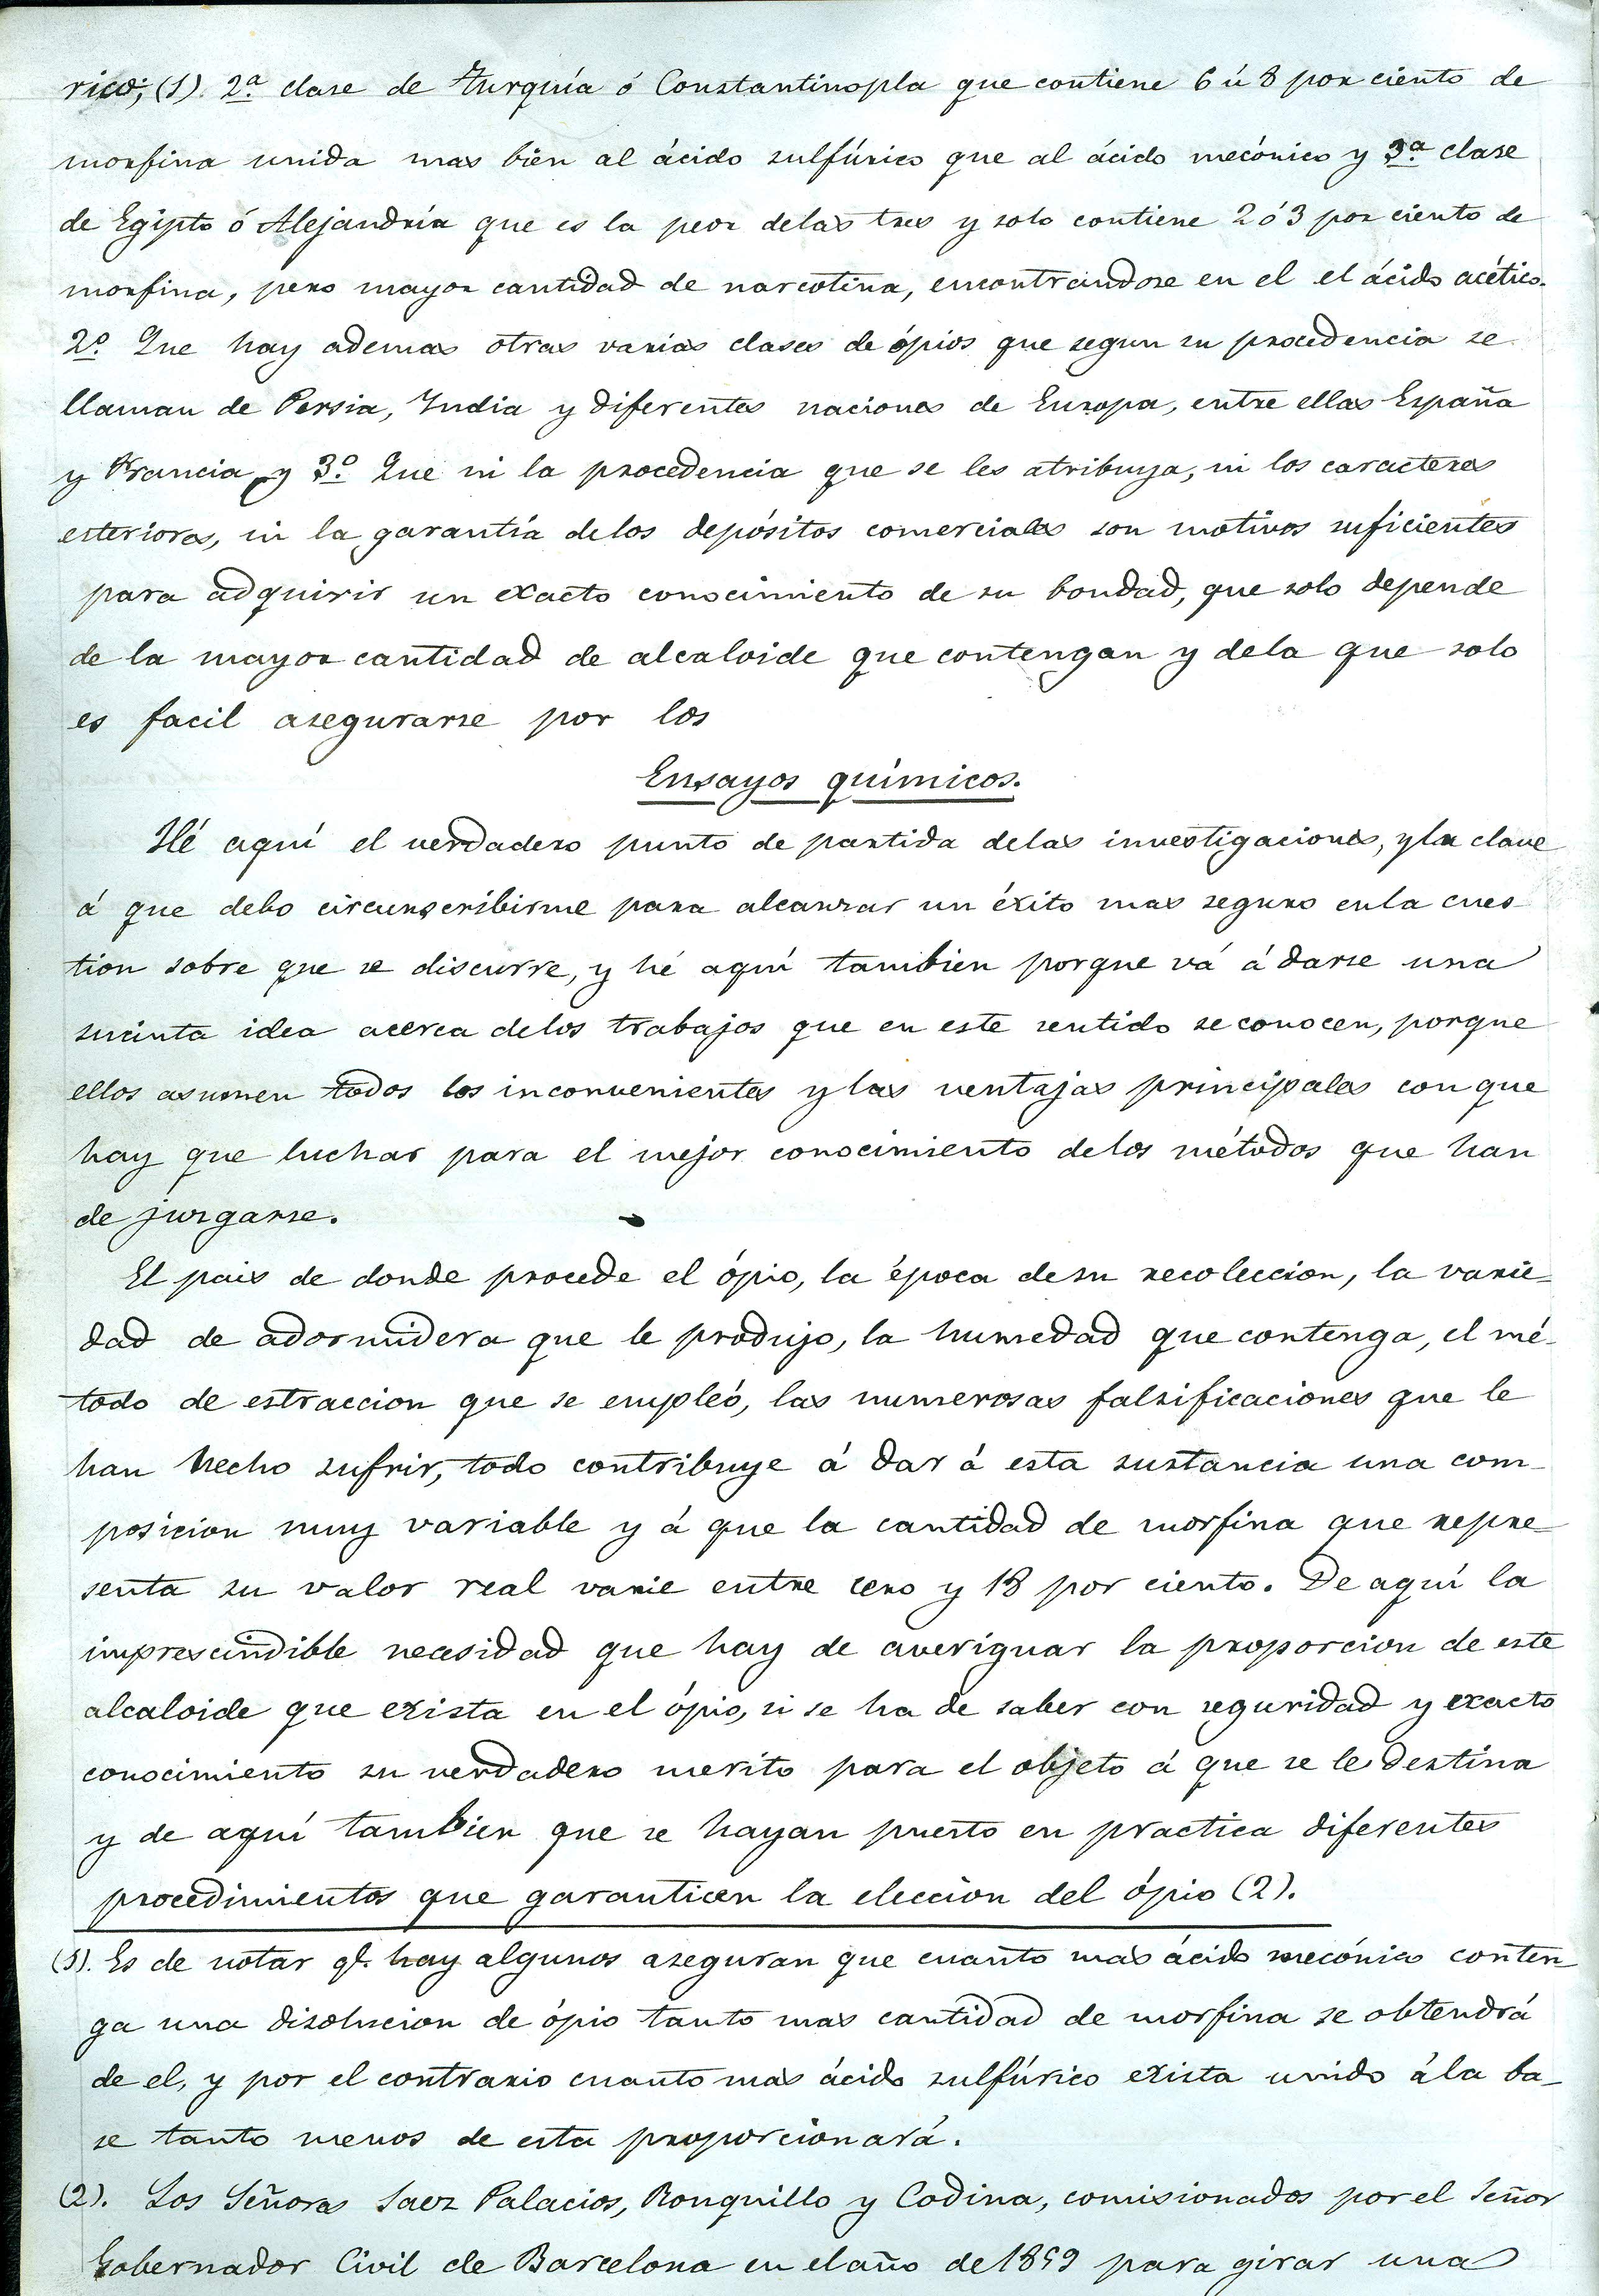 rico; (1) 2ª clase de Turquía ó Constantinopla que contiene 6 ú 8 por ciento de
morfina unida mas bién al ácido sulfúrico que al ácido mecónico y 3ª clase
de Egipto ó Alejandría que es la peor delas tres y solo contiene 2 ó 3 por ciento de
morfina, pero mayor cantidad de narcotina, encontrándose en el el ácido acético.
2º Que hay ademas otras varias clases de ópios que segun su procedencia se
llaman de Persia, India y diferentes naciones de Europa, entre ellas España
y Francia y 3º Que ni la procedencia que se les atribuya, ni los caracteres
esteriores, ni la garantía delos depósitos comerciales son motivos suficientes
para adquirir un exacto conocimiento de su bondad, que solo depende
de la mayor cantidad de alcaloide que contengan y dela que solo
es facil asegurarse por los
Ensayos químicos.
Hé aquí el verdadero punto de partida delas investigaciones, y la clave
á que debo circunscribirme para alcanzar un éxito mas seguro en la cues-
tion sobre que se discurre, y hé aquí tambien porque vá á darse una
sucinta idea acerca delos trabajos que en este sentido se conocen, porque
ellos asumen todos los inconvenientes y las ventajas principales con que
hay que luchar para el mejor conocimiento delos métodos que han
de juzgarse.
El pais de donde procede el ópio, la época desu recoleccion, la varie-
dad de adormidera que le produjo, la humedad que contenga, el mé-
todo de estraccion que se empleó, las numerosas falsificaciones que le
han hecho sufrir, todo contribuye á dar á esta sustancia una com-
posicion muy variable y á que la cantidad de morfina que repre-
senta su valor real varie entre cero y 18 por ciento. De aquí la
imprescindible necesidad que hay de averiguar la proporcion de este
alcaloide que exista en el ópio, si se ha de saber con seguridad y exacto
conocimiento su verdadero merito para el objeto á que se le destina
y de aquí tambien que se hayan puesto en practica diferentes
procedimientos que garanticen la eleccion del ópio (2).
(1). Es de notar qe. hay algunos aseguran que cuanto mas ácido mecónico conten-
ga una disolucion de ópio tanto mas cantidad de morfina se obtendrá
de el, y por el contrario cuanto mas ácido sulfúrico exista unido á la ba-
se tanto menos de esta proporcionará.
(2). Los Señores Saez Palacios, Ronquillo y Codina, comisionados por el Señor
Gobernador Civil de Barcelona en el año de 1859 para girar una